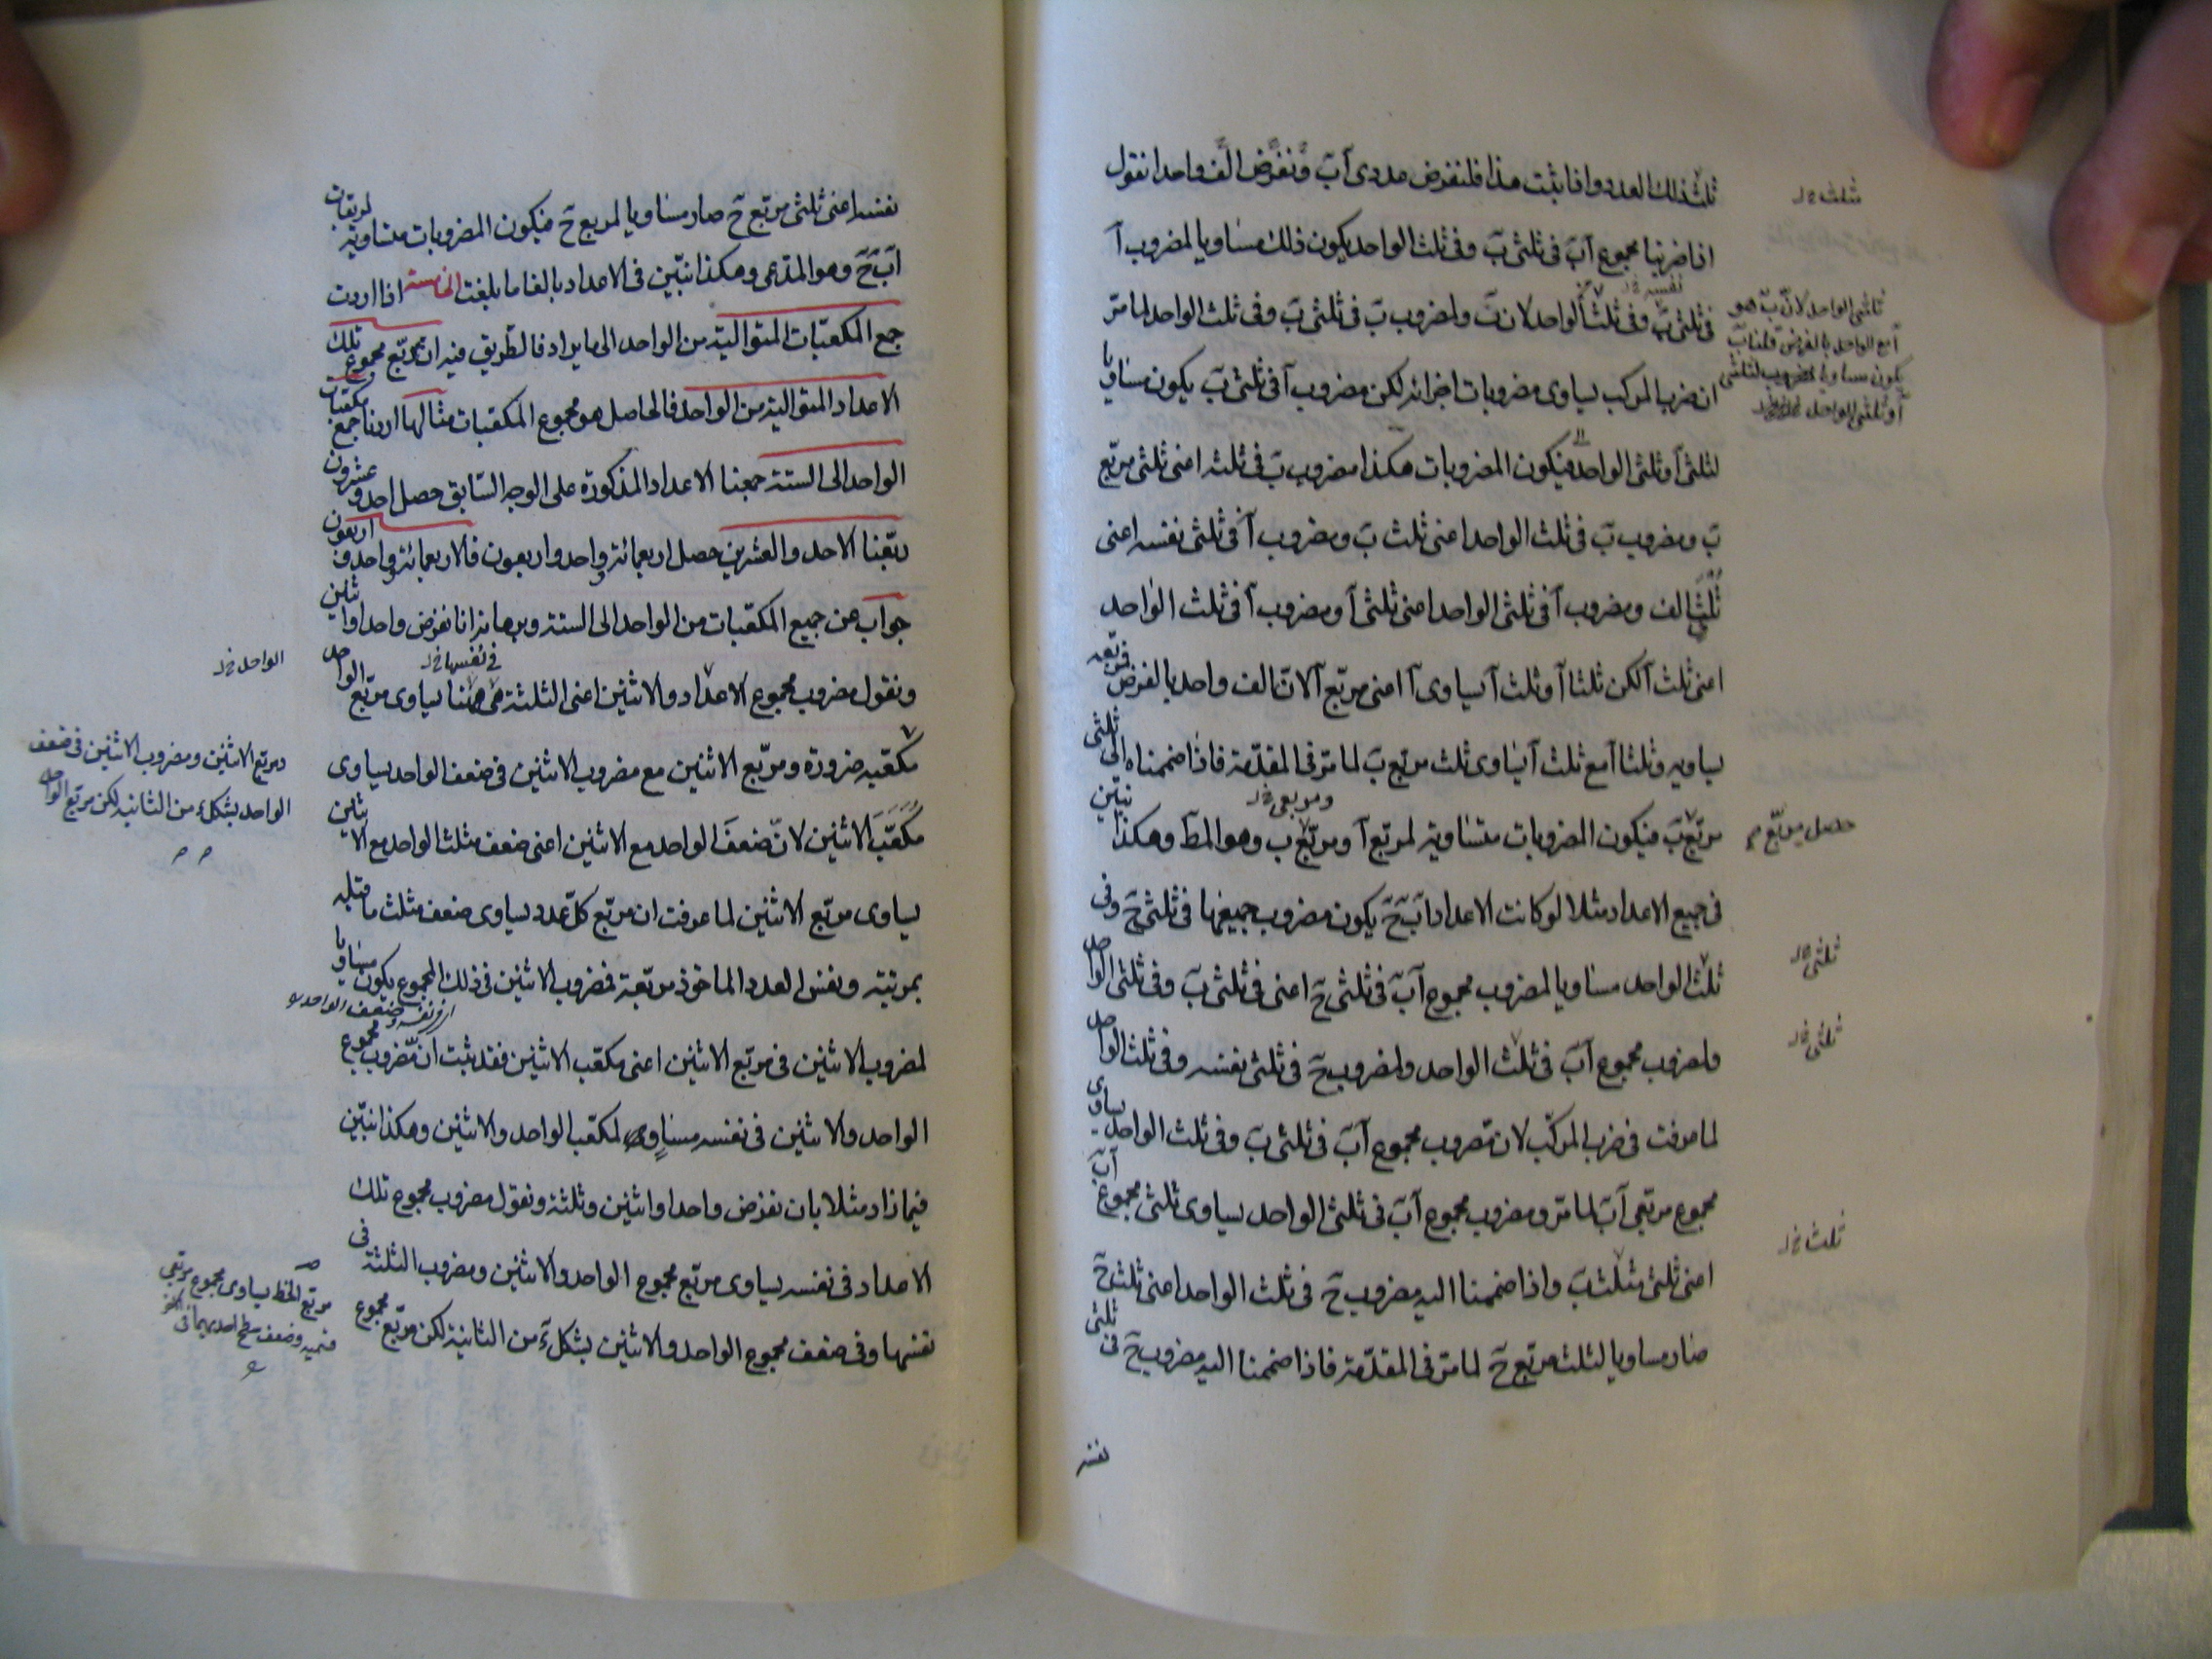 ثلث ذلك العدد واذا ثبت هذا فلنفرض عددى آب ونفرض الف واحدا نقول
اذا ضربنا مجموع آب فى ثلثى ب وفى ثلث الواحد يكون ذلك مساويا لمضروب آ
فى ثلثى ب وفى ثلث الواحد ولمضروب ب فى ثلثى ب وفى ثلث الواحد لما مرّ
ان ضرب المركب يساوى مضروبات اجزائه لكن مضروب آ فى ثلثى ب يكون مساويا
لثلثى آ وثلثى الواحد فيكون المضروبات هكذا مضروب ب فى ثلثه اعنى ثلثى مربّع
ب ومضروب ب فى ثلث الواحد اعنى ثلث ب ومضروب آ فى ثلثى نفسه اعنى
ثلثى الف ومضروب آ فى ثلثى الواحد اعنى ثلثى آ ومضروب آ فى ثلث الواحد
اعنى ثلث آ لكن ثلثا آ وثلث آ يساوى آ اعنى مربّع آ لان الف واحد بالفرض فمربّعه
يساويه وثلثا آ مع ثلث آ يساوى ثلث مربّع ب لما مرّ فى المقدّمة فاذا ضممناه الى ثلثى
مربّع ب فيكون المضروبات متساوية لمربّع آ ومربّع ب وهو المط وهكذا نبيّن
فى جميع الاعداد مثلا لو كانت الاعداد آ ب ح يكون مضروب جميعها فى ثلثى ح وفى
ثلث الواحد مساويا لمضروب مجموع آب فى ثلثى ح اعنى فى ثلثى ب وفى ثلثى الواحد
ولمضروب مجموع آب فى ثلث الواحد ولمضروب ح فى ثلثى نفسه وفى ثلث الواحد
لما عرفت فى ضرب المركّب لان مضروب مجموع آب فى ثلثى ب وفى ثلث الواحد يساوى
مجموع مربّعى آب لما مرّ ومضروب مجموع آب فى ثلثى الواحد يساوى ثلثى مجموع آب
اعنى ثلثى مثلث ب واذا ضممنا اليه مضروب ح فى ثلث الواحد اعنى ثلث ح
صار مساويا لثلث مربّع ح لما مرّ فى المقدّمة فاذا ضممنا اليه مضروب ح فى ثلثى
نفسه
ثلث
ثلثى الواحد لانّ ب هو
آ مع الواحد بالفرض
حصل مربّع
ثلثى
ثلثى
ثلث
نفسه اعنى ثلثى مربّع ح صار مساويا لمربع ح فيكون المضروبات متساوية لمربعات
آ ب ح وهو المدّعى وهكذا نبيّن فى الاعداد بالغا ما بلغت الخامسة اذا اردت
جمع المكعّبات المتوالية من الواحد الى ما يراد فالطريق فيه ان تربّع مجموع تلك
الاعداد المتوالية من الواحد فالحاصل هو مجموع المكعّبات مثالها اردنا جمع مكعّبات
الواحد الى الستة جمعنا الاعداد المذكورة على الوجه السّابق حصل احد وعشرون
ربّعنا الاحد والعشرين حصل اربعمائة واحد واربعون فالاربعمائة واحد واربعون
جواب عن جميع المكعّبات من الواحد الى الستة وبرهانه انا نفرض واحدا واثنين
ونقول مضروب مجموع الاعداد والاثنين اعنى الثلثة يساوى مربّع الواحد
مكعّبه ضرورة ومربّع الاثنين مع مضروب الاثنين فى ضعف الواحد يساوى
مكعّب الاثنين لانّ ضعف الواحد مع الاثنين اعنى ضعف مثلث الواحد مع الاثنين
يساوى مربّع الاثنين لما عرفت ان مربّع كلّ عدد يساوى ضعف مثلث ما قبله
بمرتبة ونفس العدد الماخوذ مربّعه فضروب الاثنين فى ذلك المجموع يكون مساويا
لمضروب الاثنين فى مربّع الاثنين اعنى مكعّب الاثنين فقد ثبت ان مضروب مجموع
الواحد والاثنين فى نفسه مساوٍ لمكعّب الواحد والاثنين وهكذا نبيّن
فيما زاد مثلا بان نفرض واحدا واثنين وثلثة ونقول مضروب مجموع تلك
الاعداد فى نفسه يساوى مربّع مجموع الواحد والاثنين ومضروب الثلثة فى
نفسها وفى ضعف مجموع الواحد والاثنين بشكل د من الثانية لكن مربّع مجموع
الواحد
ومربّع الاثنين ومضروب الاثنين فى ضعف
الواحد بشكل د من الثانية لكن مربّع الواحد
مربّع الخط يساوى مجموع مربّعى
قسميه وضعف سطح احدهما فى الاخر